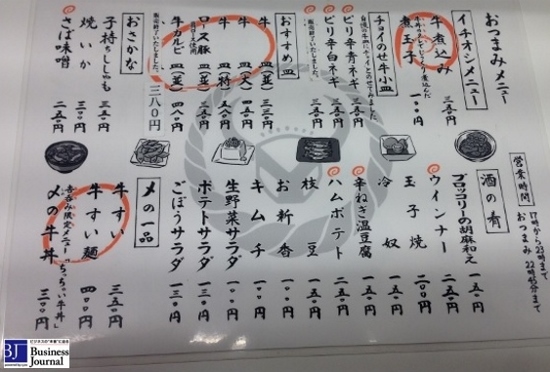 おつまみメニュー
営業時間
17時から23時まで
おつまみ 22時45分まで
イチオシメニュー
牛煮込み 三五〇円
煮玉子 一〇〇円
チョイのせ牛小皿
ピリ辛青ネギ 三五〇円
ピリ辛白ネギ 三五〇円
販売終了いたしました。
おすすめ皿
牛皿(並) 三三〇円
牛皿(大)
牛皿(特)
ロース豚皿(並)
牛カルビ皿(並) 四八〇円
販売終了いたしました。
三八〇円
おさかな
子持ちししゃも
焼いか
さば味噌 二五〇円
酒の肴
ブロッコリーの胡麻和え 一五〇円
ウインナー 二五〇円
玉子焼 二〇〇円
冷奴 一五〇円
辛ねぎ温豆腐
ハムポテト
枝豆 一五〇円
お新香 一〇〇円
キムチ 一〇〇円
生野菜サラダ 一〇〇円
ポテトサラダ 一三〇円
ごぼうサラダ 一三〇円
〆の一品
牛すい 三五〇円
牛すい麺 四〇〇円
呑み限定メニュー「ちっちゃい牛丼」
〆の牛丼 三〇〇円
BJ
ビジネスの"本音"に迫る
Business
Journal